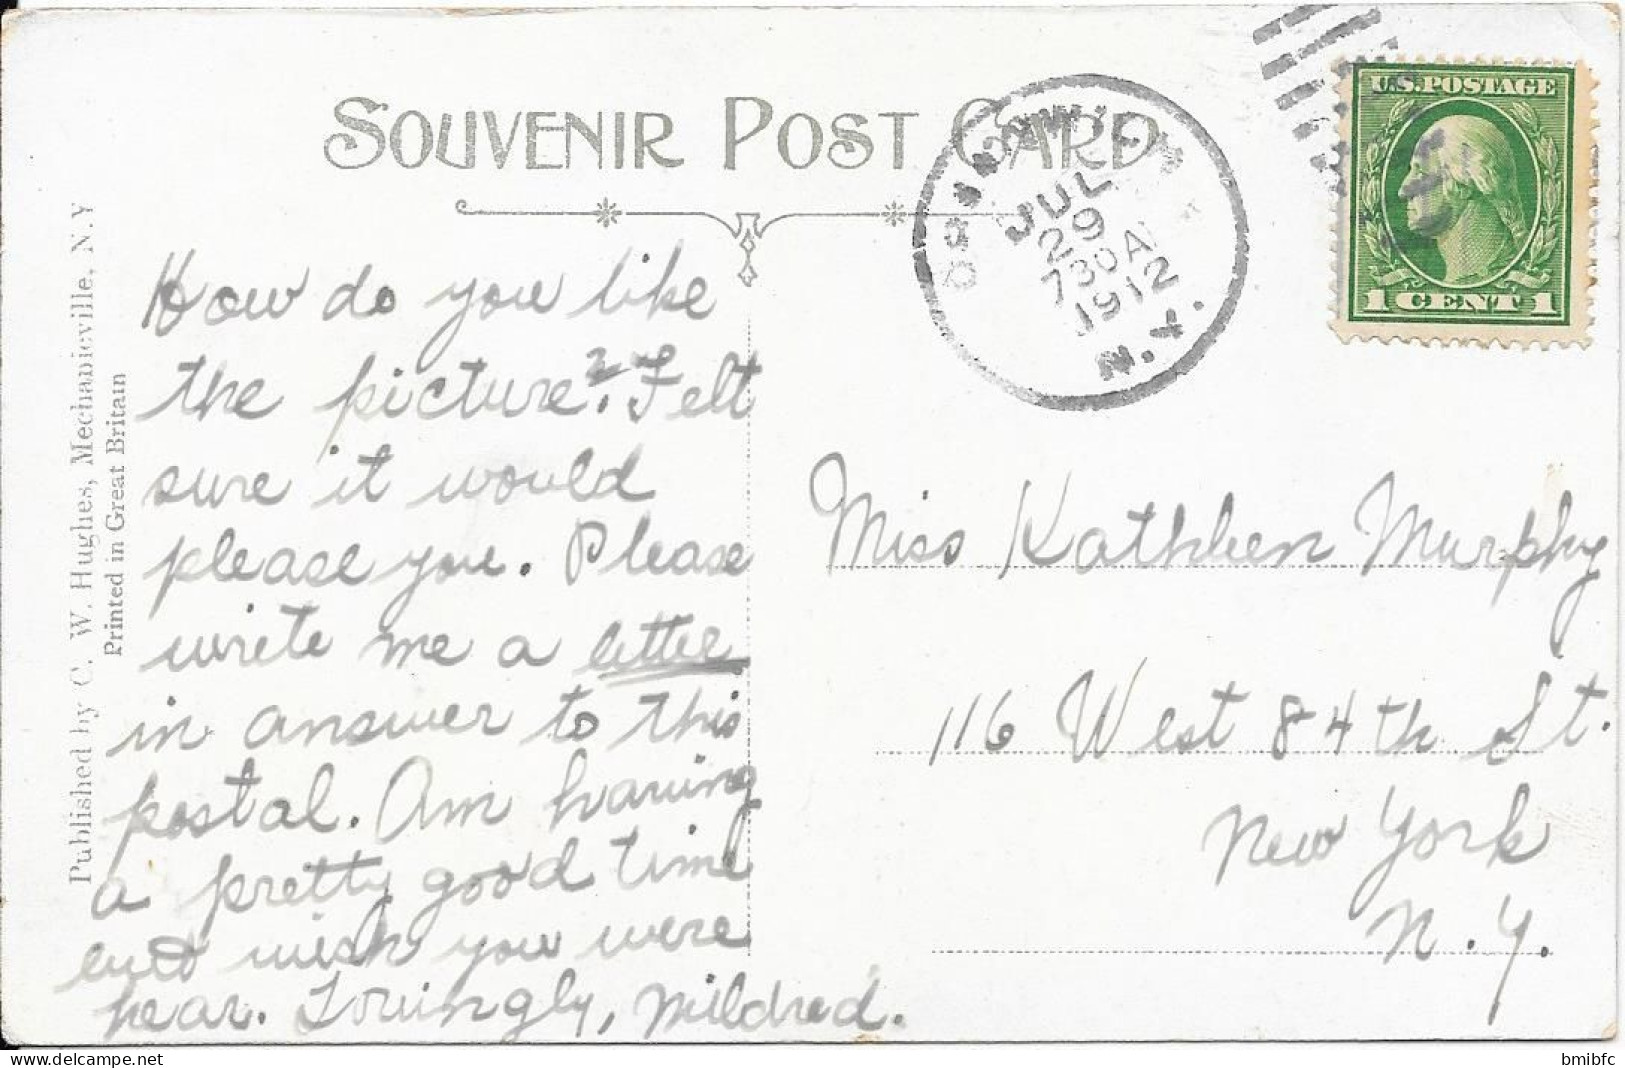 SOUVENIR POST CARD
GREENWICH
JUL
29
730A
1912
N.Y.
U.S. POSTAGE
1 CENT 1
Published by C. W. Hughes, Mechanicville, N. Y
Printed in Great Britain
How do you like
the picture? Felt
sure it would
please you. Please
write me a letter
in answer to this
postal. Am having
a pretty good time
but wish you were
near. Lovingly, Mildred.
Miss Kathleen Murphy
116 West 84th St.
New York
N. Y.
bmibfc